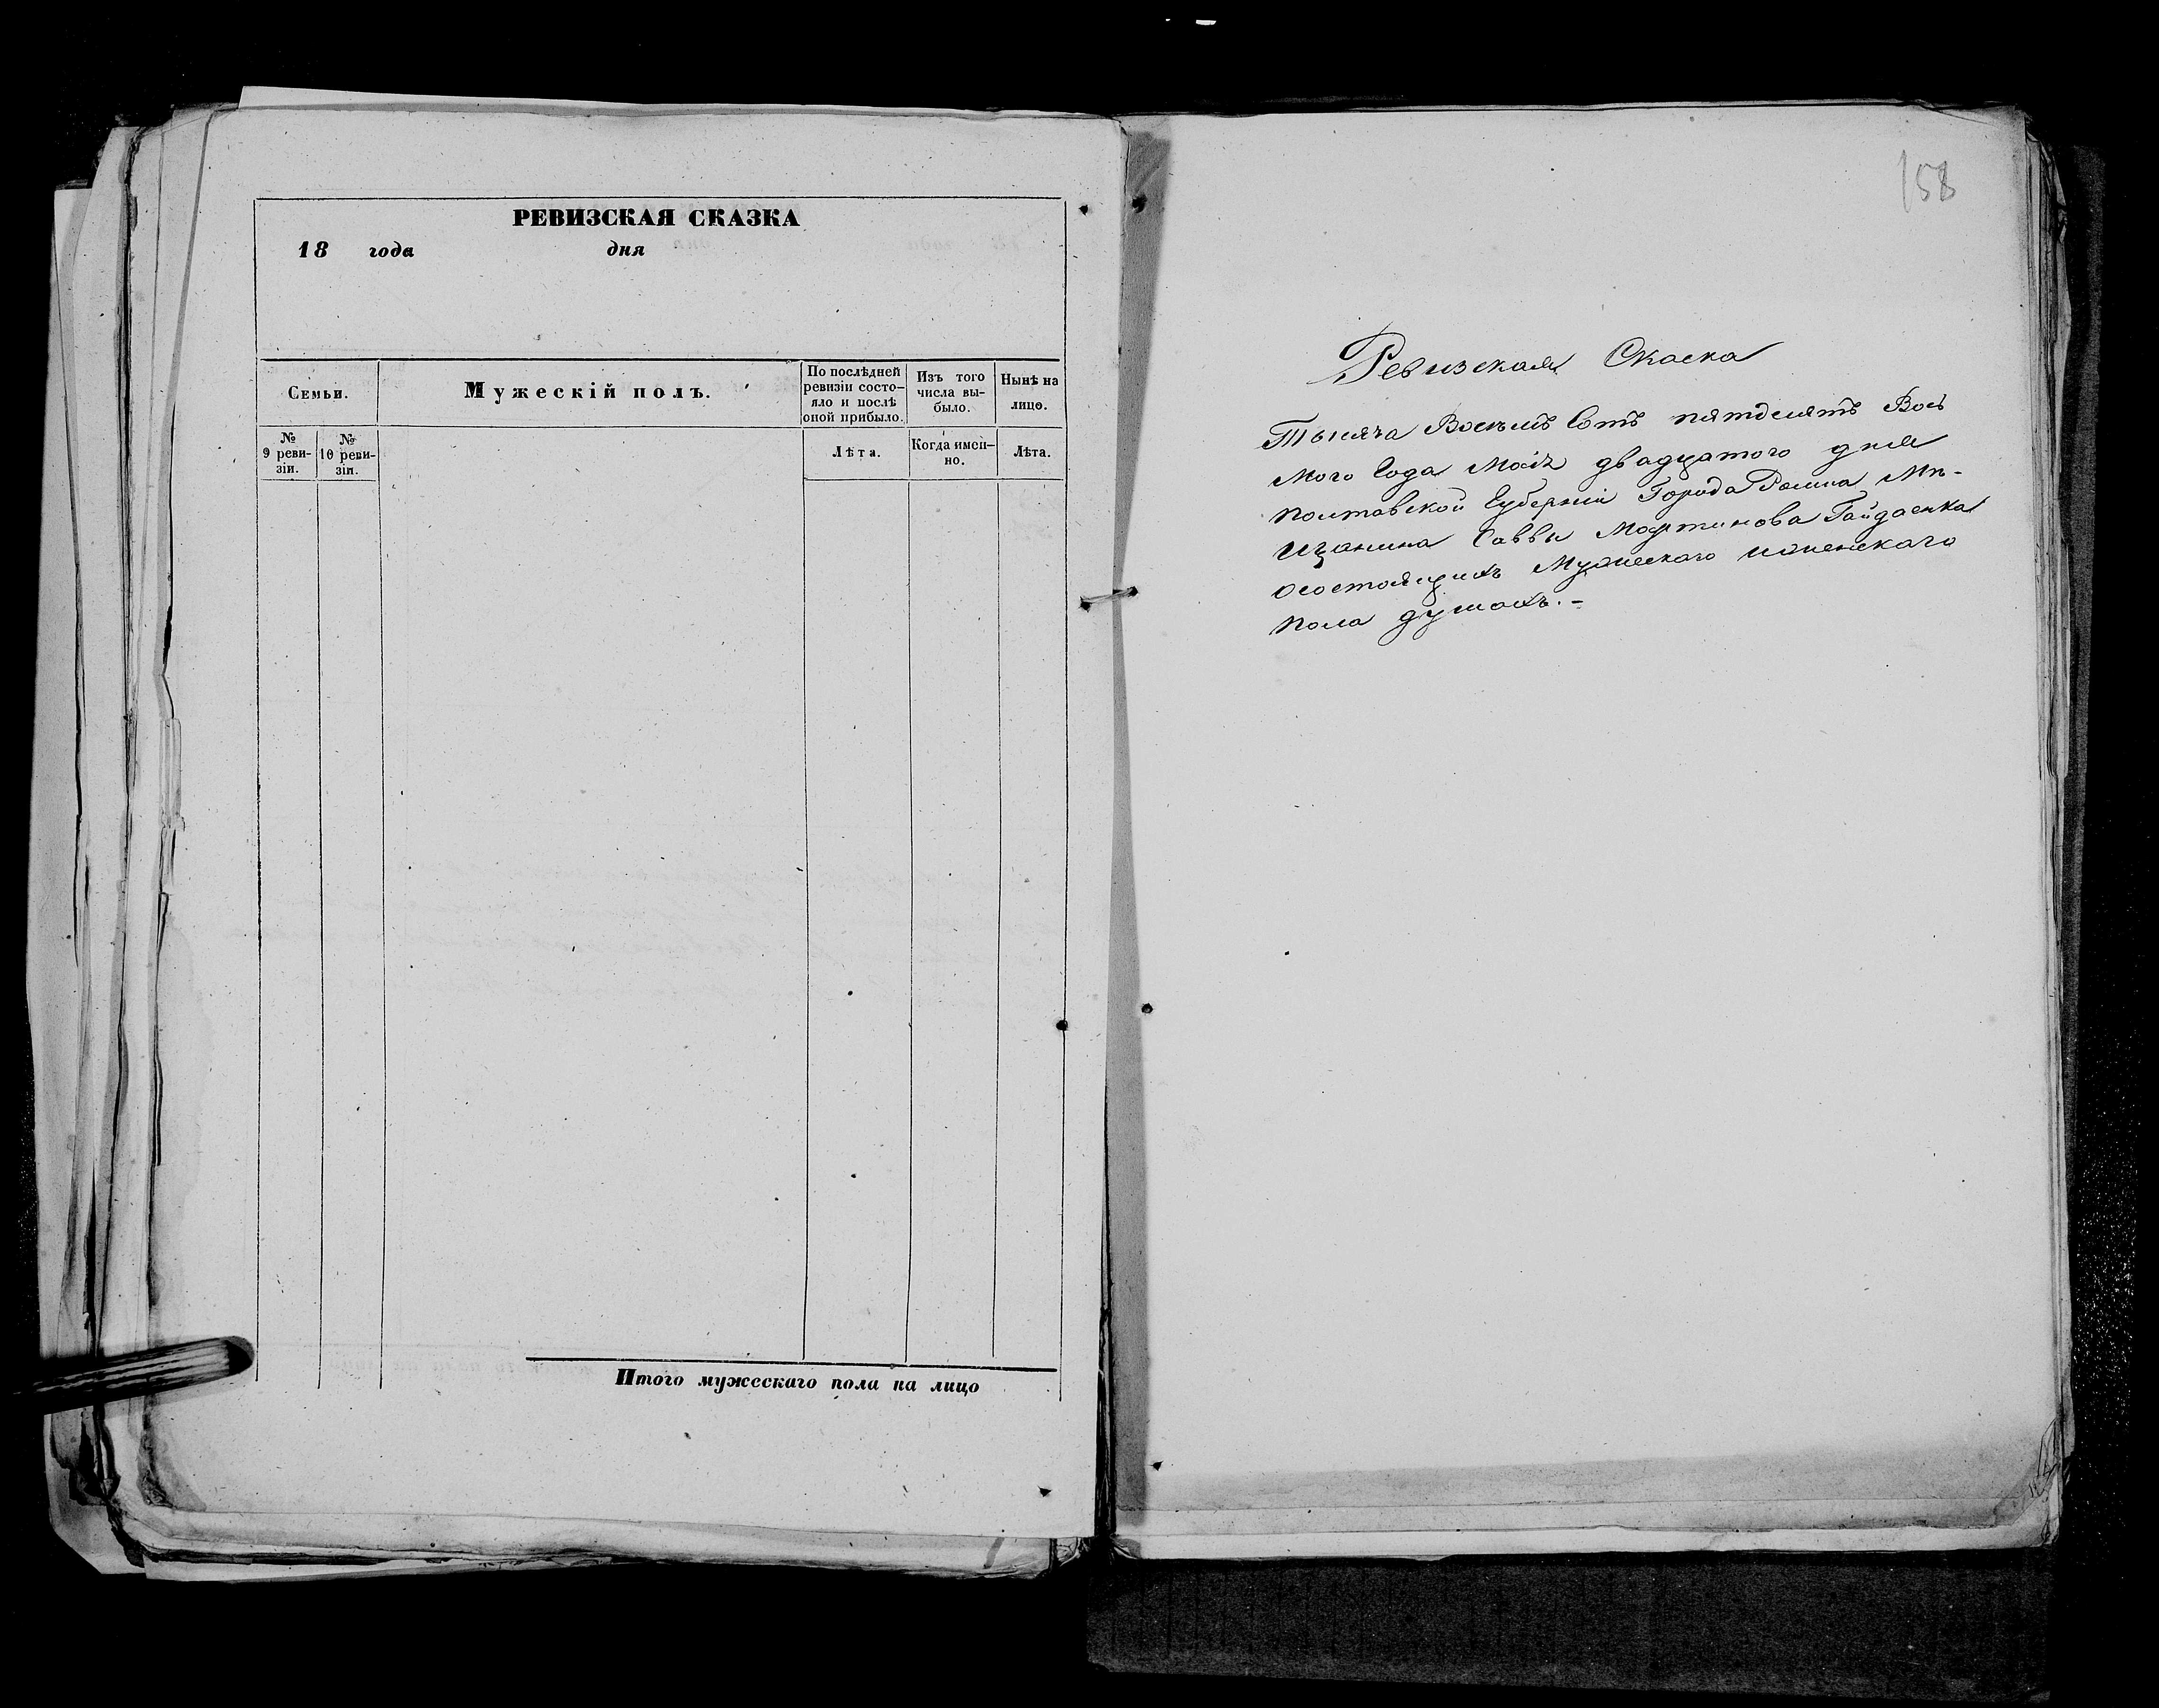 РЕВИЗСКАЯ СКАЗКА
18 года дня
Семьи.
Мужескій полъ.
По послѣдней
ревизіи состо-
яло и послѣ
оной прибыло.
Изъ того
числа вы-
было.
Нынѣ на
лицо.
№
9 реви-
зіи.
№
10 реви-
зіи.
Лѣта.
Когда имен-
но.
Лѣта.
Итого мужескаго пола на лицо
158
Ревизская Скаска
Тысяча Восемъ Сотъ пятдесятъ Вось
мого Года Маія двадцатого дня
Полтавской Губерніи Города Ромна Мѣ-
щанина Саввы Мартинова Гайдаенка
осостоящихъ Мужескаго иженскаго
пола душахъ.-